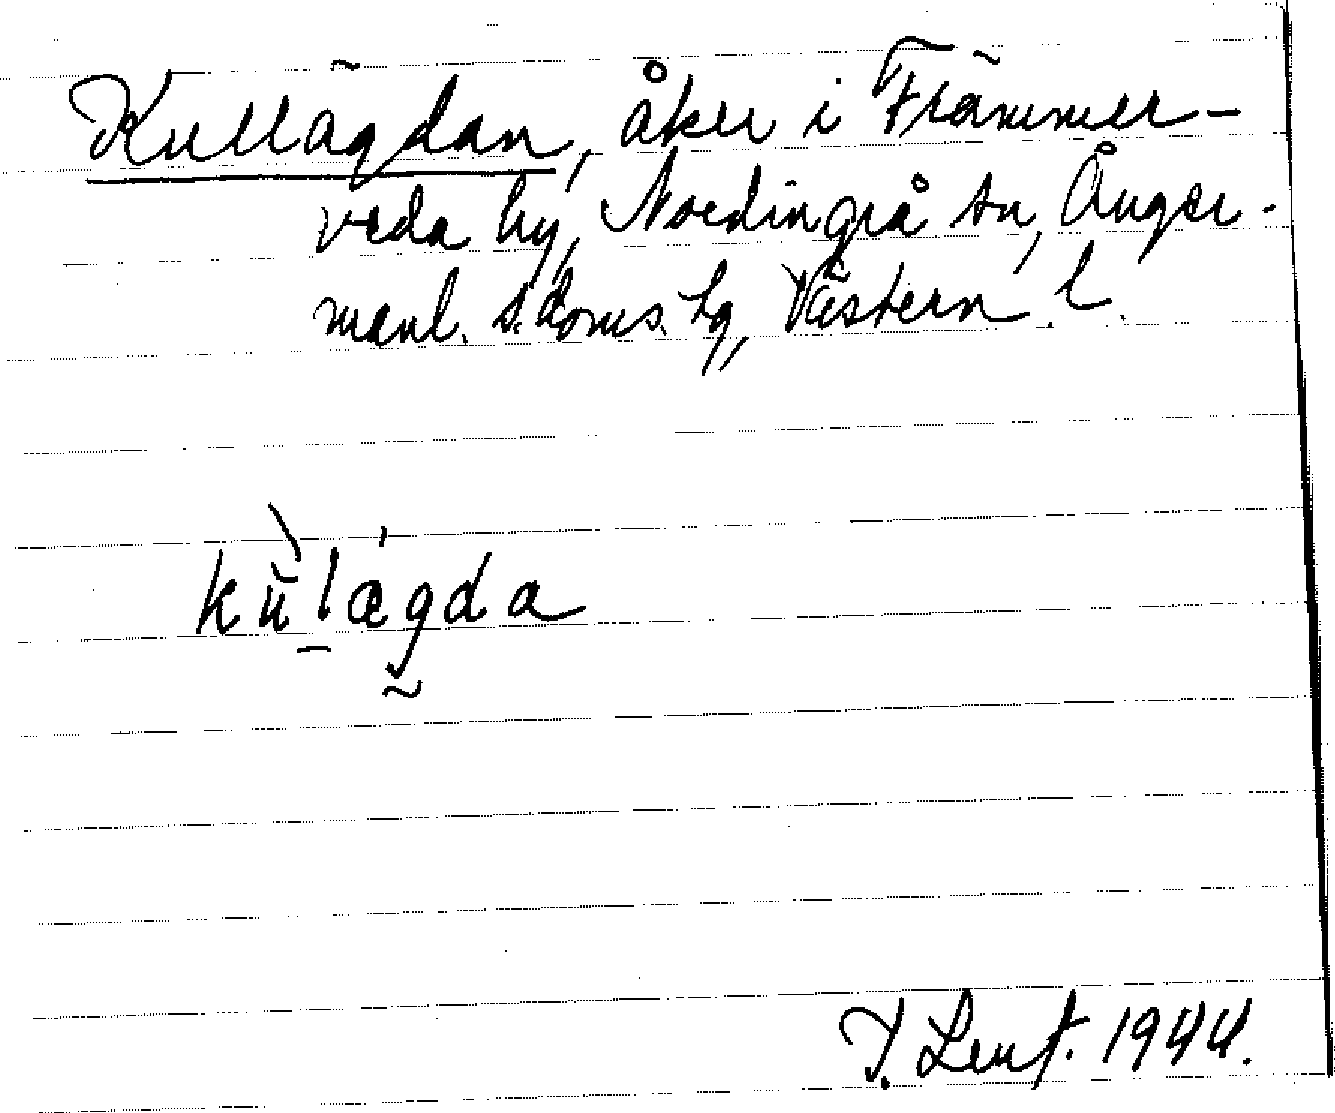 Kullägdan, åker i Främmer-
veda by, Nordingrå sn, Ånger-
manl. s. doms. tg, Västern. l.
kùlægda
I. Lent. 1944.